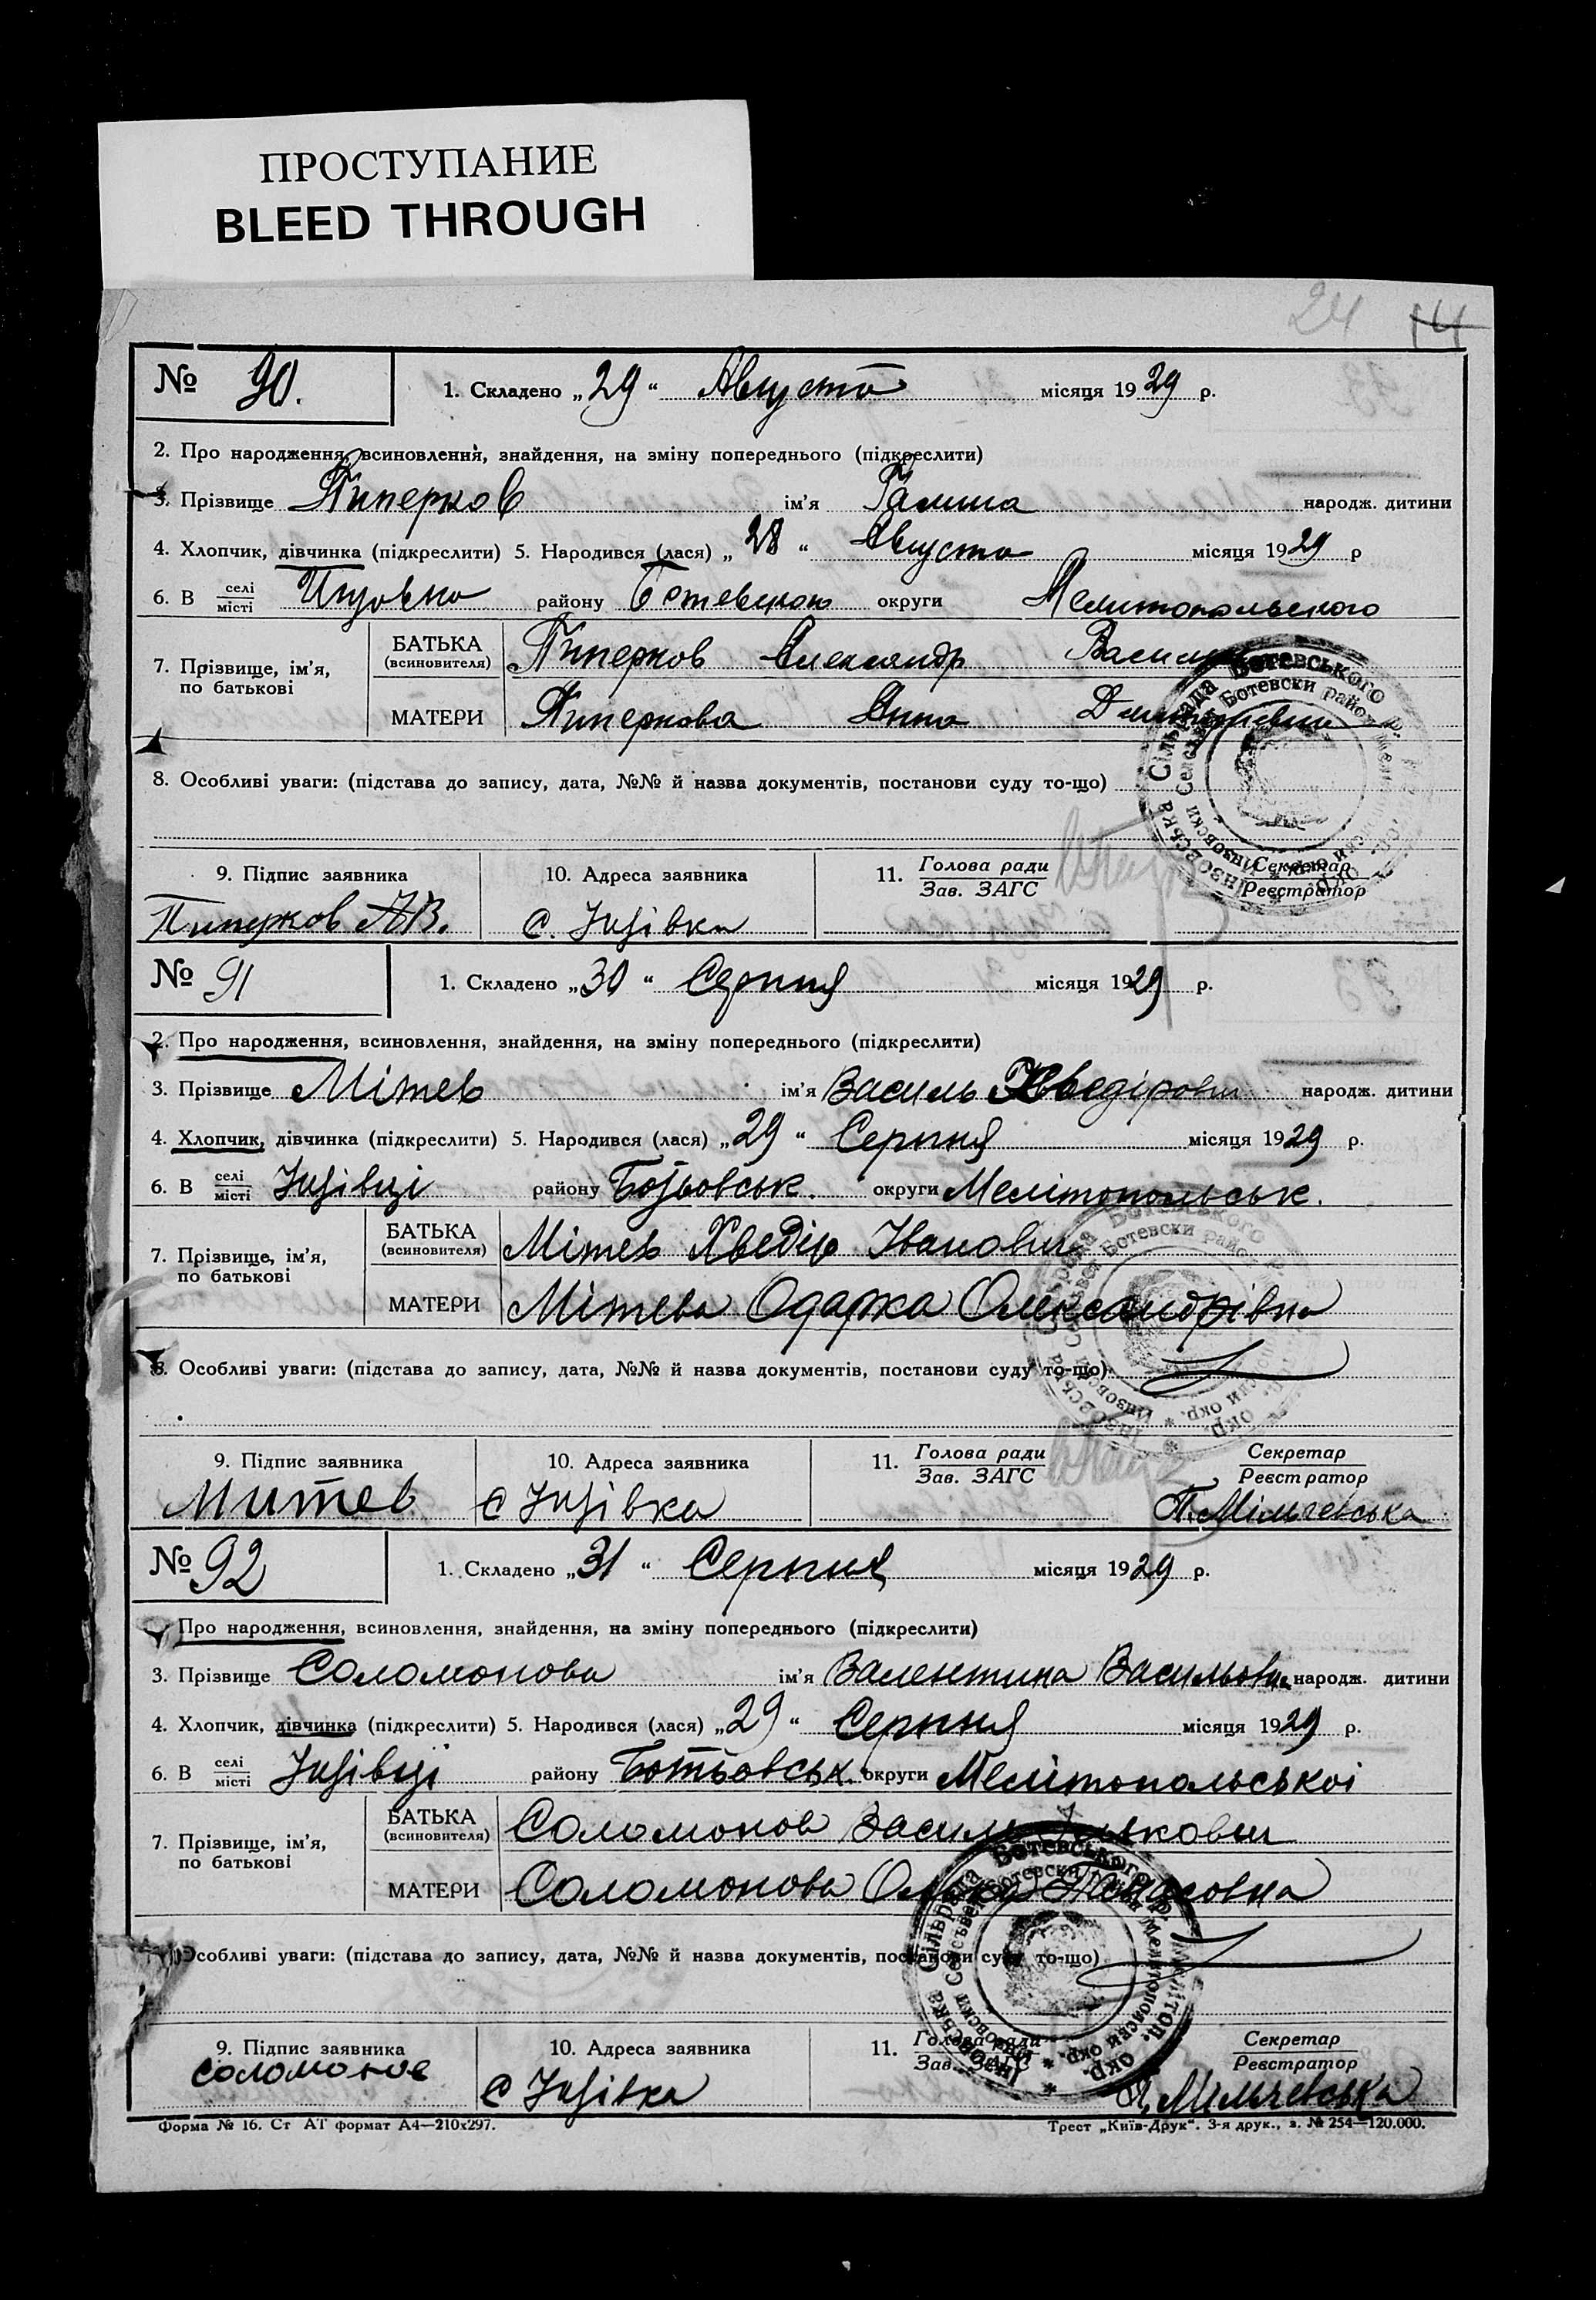 ПРОСТУПАНИЕ
BLEED THROUGH
24 14
№ 90. 1. Складено „29“ Августа місяця 1929 р.
2. Про народження, всиновлення, знайдення, на зміну попереднього (підкреслити)
3. Прізвище Пиперков ім'я Галина народж. дитини
4. Хлопчик, дівчинка (підкреслити) 5. Народився (лася) „28“ Августа місяця 1929 р
6. В селі/місті района Ботевского округи Мелитопольского
7. Прізвище, ім'я, по батькові БАТЬКА (всиновителя) Пиперков Александр
МАТЕРИ Пиперкова Анна
8. Особливі уваги: (підстава до запису, дата, №№ й назва документів, постанови суду то-що)
9. Підпис заявника 10. Адреса заявника 11. Голова ради/Зав. ЗАГС Секретар/Реєстратор
Пиперков А.В. С. Інзівка
№ 91 1. Складено „30“ Серпня місяця 1929 р.
2. Про народження, всиновлення, знайдення, на зміну попереднього (підкреслити)
3. Прізвище Мітев ім'я Василь Хведірович народж. дитини
4. Хлопчик, дівчинка (підкреслити) 5. Народився (лася) „29“ Серпня місяця 1929 р.
6. В селі/місті Інзівці району Ботьовськ. округи Мелітопольськ.
7. Прізвище, ім'я, по батькові БАТЬКА (всиновителя) Мітев Хведір Іванович
МАТЕРИ Мітева Одарка Олександрівна
8. Особливі уваги: (підстава до запису, дата, №№ й назва документів, постанови суду то-що)
9. Підпис заявника 10. Адреса заявника 11. Голова ради/Зав. ЗАГС Секретар/Реєстратор
Митев С Інзівка П. Мільчевська
№ 92 1. Складено „31“ Серпня місяця 1929 р.
Про народження, всиновлення, знайдення, на зміну попереднього (підкреслити)
3. Прізвище Соломонова ім'я Валентина Васильовна народж. дитини
4. Хлопчик, дівчинка (підкреслити) 5. Народився (лася) „29“ Серпня місяця 1929 р.
6. В селі/місті Інзівці району Ботьовськ. округи Мелітопольськоі
7. Прізвище, ім'я, по батькові БАТЬКА (всиновителя) Соломонов Василь
МАТЕРИ Соломонова
Особливі уваги: (підстава до запису, дата, №№ й назва документів, постанови суду то-що)
9. Підпис заявника 10. Адреса заявника 11. Голова ради/Зав. ЗАГС Секретар/Реєстратор
Соломонов С Інзівка П. Мільчевська
Форма № 16. Ст АТ формат А4—210х297. Трест „Київ-Друк“. 3-я друк., з. № 254—120.000.